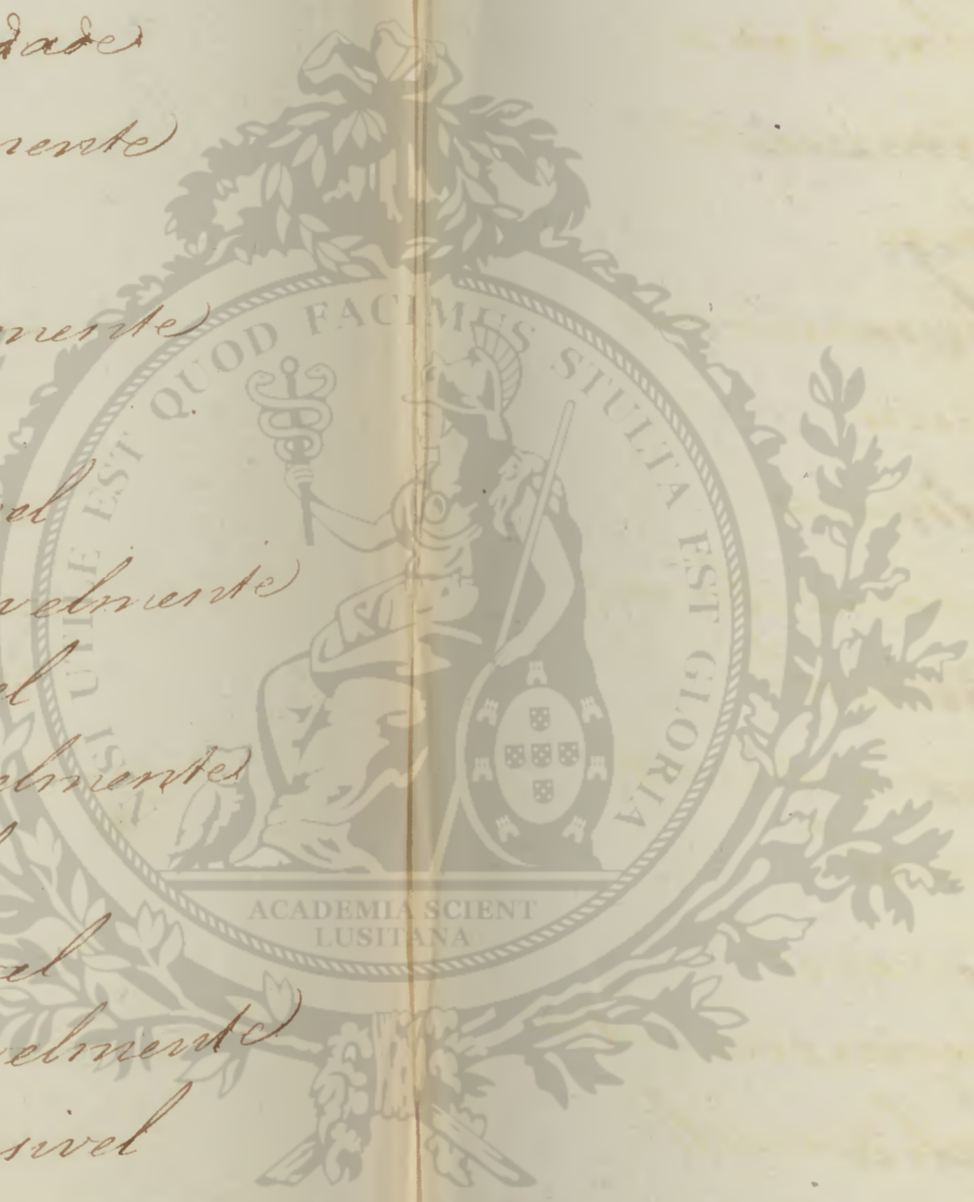 dade
mente
mente
el
velmente
el
elmente
l
el
velmente
sivel
NISI UTILE EST QUOD FACIMUS STULTA EST GLORIA
ACADEMIA SCIENT
LUSITANA